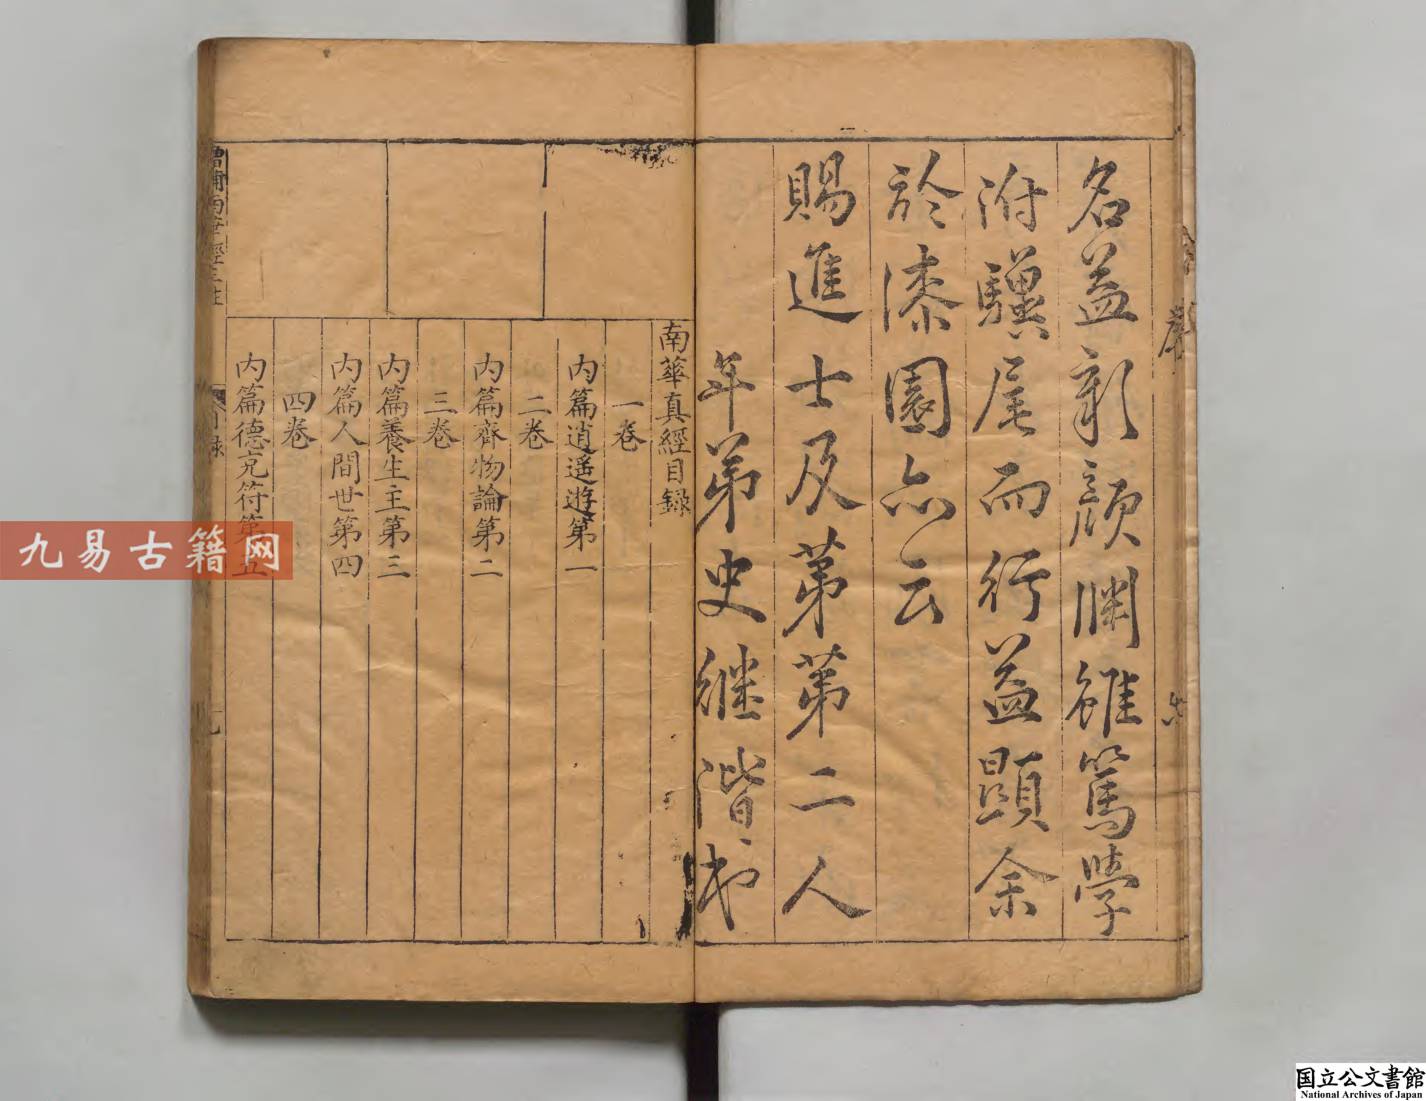 名益彰顔淵雖篤學
附驥尾而行益顯余
於漆園亦云
賜進士及第第二人
年弟史継偕書
南華真經目録
一卷
内篇逍遥遊第一
二卷
内篇齊物論第二
三卷
内篇養生主第三
内篇人間世第四
四卷
内篇德充符第五
九易古籍网
国立公文書館
National Archives of Japan